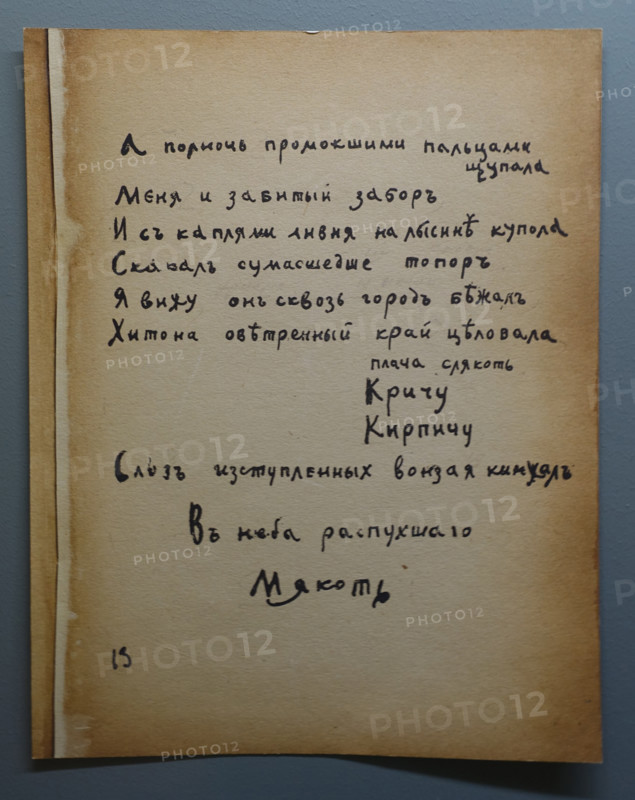 А полночь промокшими пальцами
щупала
Меня и забитый заборъ
И съ каплями ливня на лысинѣ купола
Скакалъ сумасшедше топоръ
Я вижу онъ сквозь городъ бѣжалъ
Хитона овѣтренный край цѣловала
плача слякоть
Кричу
Кирпичу
Слозъ изступленныхъ вонзая кинжалъ
Въ неба распухшаго
Мякоть
13